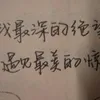 我最深的绝望
遇见最美的惊